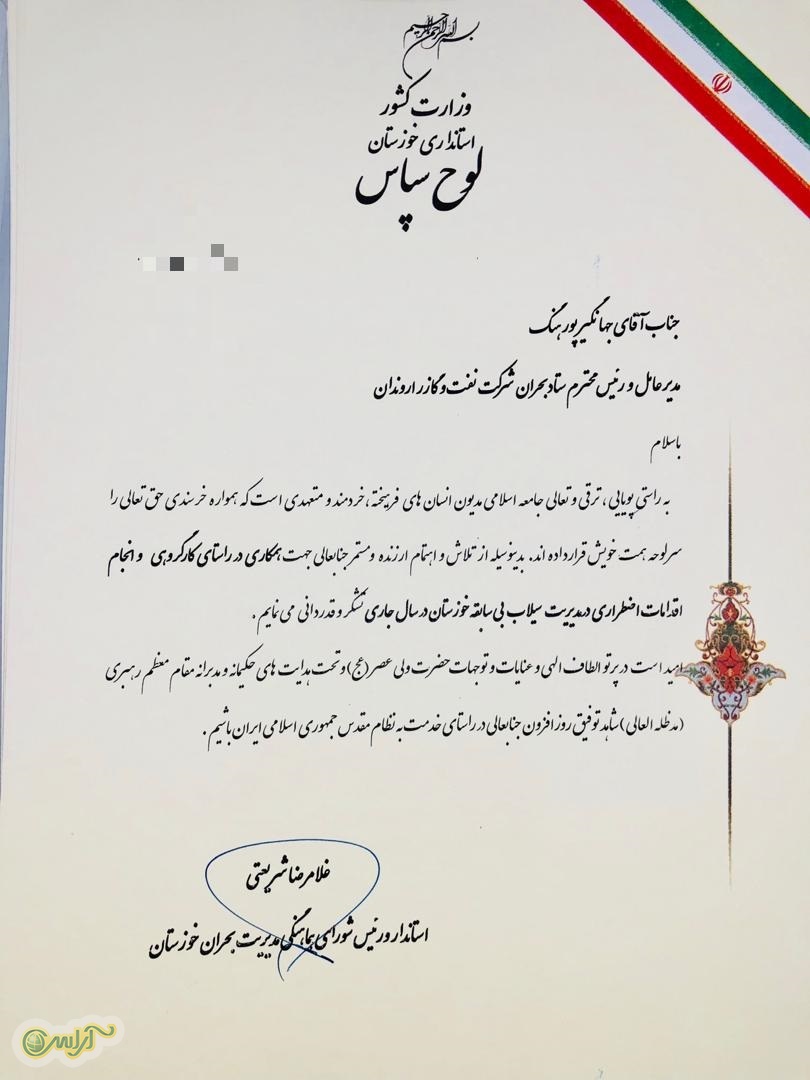 بسم الله الرحمن الرحیم
وزارت کشور
استانداری خوزستان
لوح سپاس
جناب آقای جهانگیر پورهنگ
مدیرعامل و رئیس محترم ستاد بحران شرکت نفت و گاز اروندان
باسلام
به راستی پویایی، ترقی و تعالی جامعه اسلامی مدیون انسان های فرهیخته، خردمند و متعهدی است که همواره خرسندی حق تعالی را
سرلوحه همت خویش قرار داده اند. بدینوسیله از تلاش و اهتمام ارزنده و مستمر جنابعالی جهت همکاری در راستای کارگروهی و انجام
اقدامات اضطراری در مدیریت سیلاب بی سابقه خوزستان در سال جاری تشکر و قدردانی می نمایم.
امید است در پرتو الطاف الهی و عنایات و توجهات حضرت ولی عصر(عج) و تحت هدایت های حکیمانه و مدبرانه مقام معظم رهبری
(مدظله العالی) شاهد توفیق روز افزون جنابعالی در راستای خدمت به نظام مقدس جمهوری اسلامی ایران باشیم.
غلامرضا شریعتی
استاندار و رئیس شورای هماهنگی مدیریت بحران خوزستان